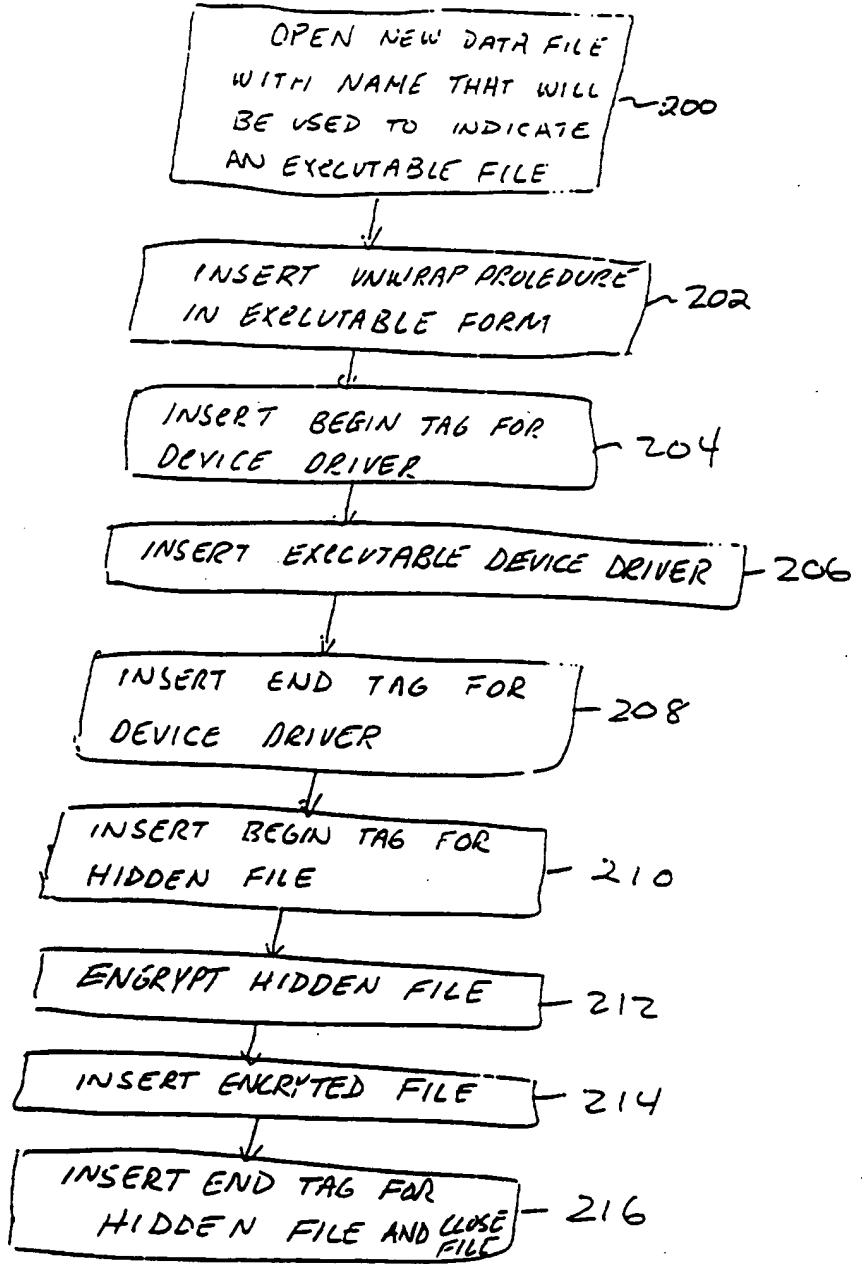 OPEN NEW DATA FILE
WITH NAME THAT WILL
BE USED TO INDICATE
AN EXECUTABLE FILE
200
INSERT UNWRAP PROCEDURE
IN EXECUTABLE FORM
202
INSERT BEGIN TAG FOR
DEVICE DRIVER
204
INSERT EXECUTABLE DEVICE DRIVER
206
INSERT END TAG FOR
DEVICE DRIVER
208
INSERT BEGIN TAG FOR
HIDDEN FILE
210
ENGRYPT HIDDEN FILE
212
INSERT ENCRYTED FILE
214
INSERT END TAG FOR
HIDDEN FILE AND CLOSE
FILE
216